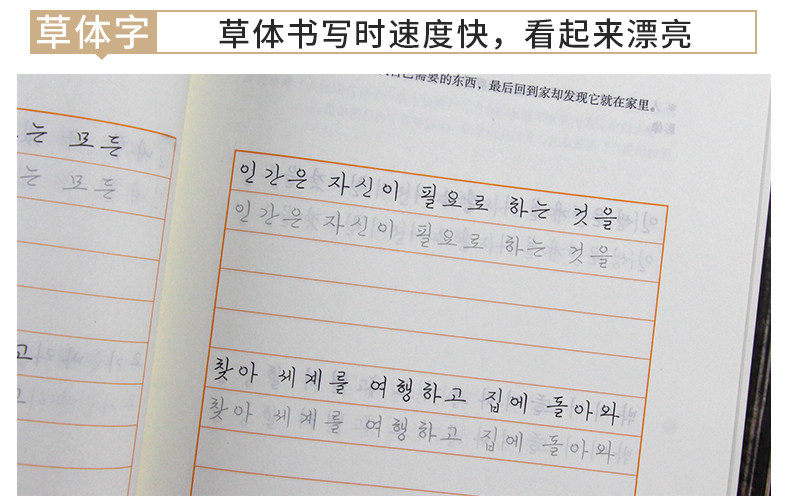 草体字
草体书写时速度快，看起来漂亮
需要的东西，最后回到家却发现它就在家里。
는 모든
는 모든
인간은 자신이 필요로 하는 것을
인간은 자신이 필요로 하는 것을
고
고
찾아 세계를 여행하고 집에 돌아와
찾아 세계를 여행하고 집에 돌아와